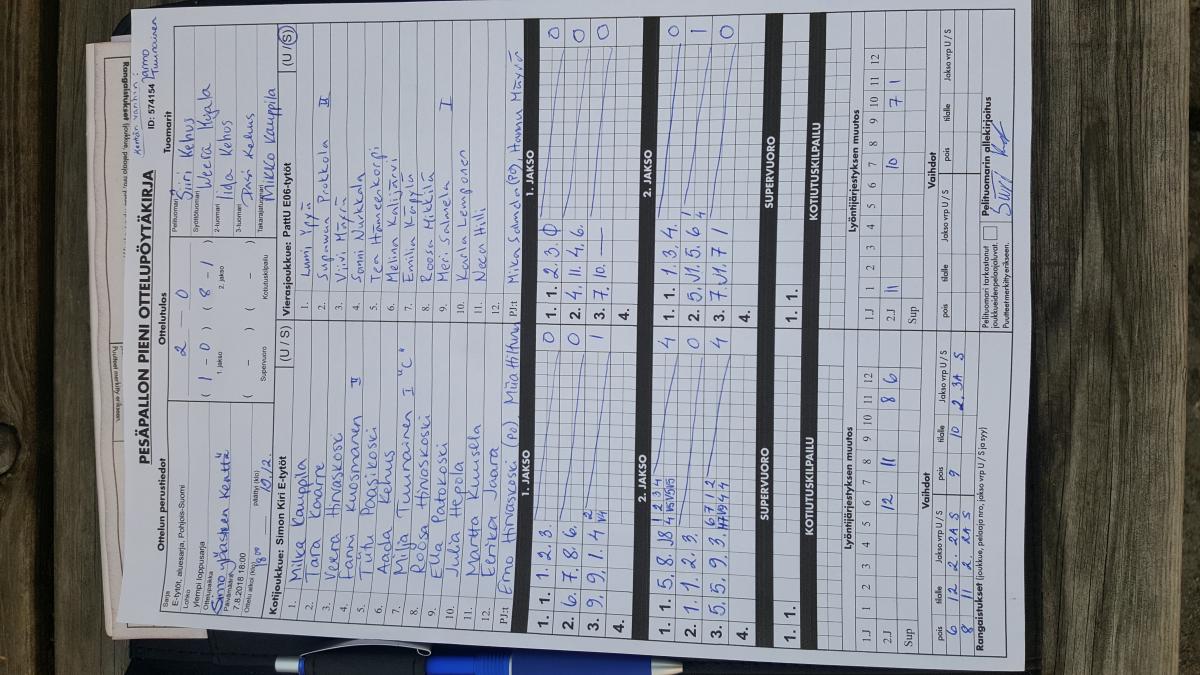 PESÄPALLON PIENI OTTELUPÖYTÄKIRJA
ID: 574154
Jarmo
Tuunainen
Ottelun perustiedot
Sarja
E-tytöt, aluesarja, Pohjois-Suomi
Lohko
Ylempi loppusarja
Ottelupaikka
Päivämäärä
7.8.2018 18:00
Ottelu alkoi (klo) 18.00 päättyi (klo)
Ottelutulos
2 – 0
( 1 – 0 ) ( 8 – 1 )
1. jakso 2. jakso
( – ) ( – )
Supervuoro Kotiutuskilpailu
Tuomarit
Pelituomari
Siiri Kehus
Syöttötuomari
Weera Kujala
2-tuomari
Iida Kehus
3-tuomari
Pasi Kehus
Takarajatuomari
Mikko Kauppila
Kotijoukkue: Simon Kiri E-tytöt (U / S)
1. Milka Kauppila
2. Tara Konarre
3. Veera Hirvaskoski
4. Fanni Kuosmanen II
5. Tiitu Paasikoski
6. Aada Kehus
7. Milja Tuunainen I "C"
8. Reosa Hirvoskoski
9. Ella Paatokoski
10. Julia Hepola
11. Martta Kuusela
12. Eerika Jaara
PJ:t Erno Hirvaskoski (PO) Miia Hiltunen
Vierasjoukkue: PattU E06-tytöt (U / S)
1. Lumi Ypyä
2. Supawan Prokkola II
3. Viivi Mäyrä
4. Sanni Nurkkala
5. Tea Hämeenkorpi
6. Melina Kalijärvi
7. Emilia Käpylä
8. Roosa Mikkilä
9. Meri Salmela I
10. Karla Lemponen
11. Noca Hilli
12.
PJ:t Mika Somero (PO), Hannu Mäyrä
1. JAKSO
1. 1. 1. 2. 3. 0
2. 6. 7. 8. 6. 0
3. 9. 9. 1. 4 1
4.
1. JAKSO
1. 1. 2. 3. 0
2. 4. 11. 4. 6. 0
3. 7. 10. — 0
4.
2. JAKSO
1. 1. 5. 8. 4
2. 1. 1. 2. 3. 0
3. 5. 5. 9. 3. 4
4.
2. JAKSO
1. 1. 1. 3. 4. 0
2. 5. 5. 6 1
3. 7. 0
4.
SUPERVUORO
1. 1.
SUPERVUORO
1. 1.
KOTIUTUSKILPAILU
KOTIUTUSKILPAILU
Lyöntijärjestyksen muutos
1.J 1 2 3 4 5 6 7 8 9 10 11 12
2.J 12 11 8 6
Sup
Lyöntijärjestyksen muutos
1.J 1 2 3 4 5 6 7 8 9 10 11 12
2.J 11 10 7 1
Sup
Vaihdot
pois tilalle Jakso vrp U / S pois tilalle Jakso vrp U / S
6 12 2. 2A S 9 10 2. 3A S
8 11 2. 2A S
Vaihdot
pois tilalle Jakso vrp U / S pois tilalle Jakso vrp U / S
Rangaistukset (joukkue, pelaaja nro, jakso vrp U / S ja syy)
Pelituomari tarkastanut
joukkueiden pelaajaluvat.
Puutteet merkitty erikseen.
Pelituomarin allekirjoitus